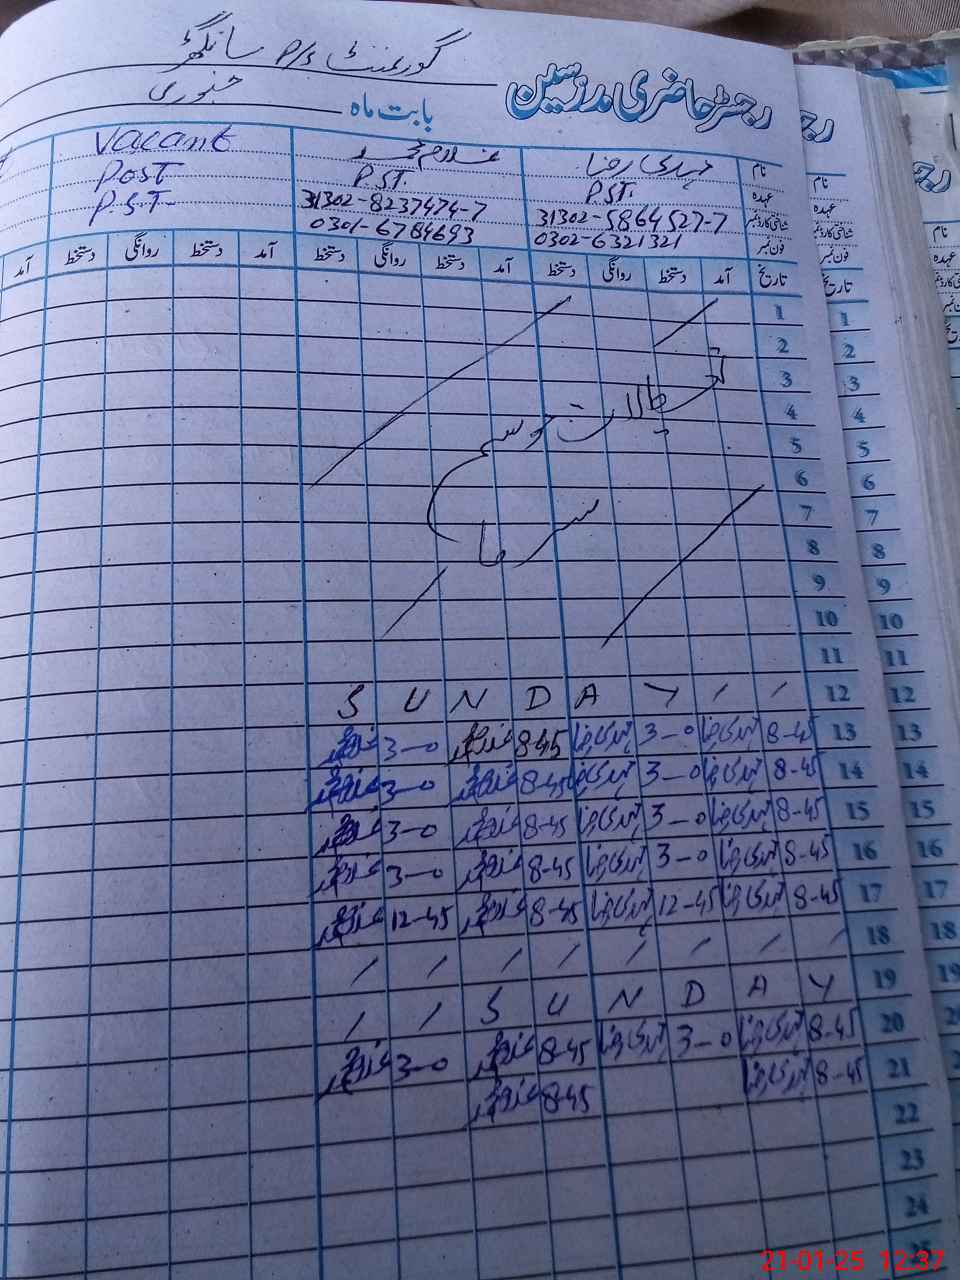 رجسٹر حاضری مدرسین
گورنمنٹ P/S سانگھڑ
بابت ماہ جنوری
نام مہدی رضا غلام محمد Vacant
عہدہ P.S.T. P.S.T. Post
شناختی کارڈ نمبر 31302-5864527-7 31302-8237474-7 P.S.T-
فون نمبر 0302-6321321 0301-6784693
تاریخ آمد دستخط روانگی دستخط آمد دستخط روانگی دستخط آمد دستخط روانگی دستخط آمد
1
2
3 تعطیلات موسم
4
5
6
7 سرما
8
9
10
11
12 S U N D A Y / /
13 8-45 مہدی رضا 3-0 مہدی رضا 8-45 غلام محمد 3-0 غلام محمد
14 8-45 مہدی رضا 3-0 مہدی رضا 8-45 غلام محمد 3-0 غلام محمد
15 8-45 مہدی رضا 3-0 مہدی رضا 8-45 غلام محمد 3-0 غلام محمد
16 8-45 مہدی رضا 3-0 مہدی رضا 8-45 غلام محمد 3-0 غلام محمد
17 8-45 مہدی رضا 12-45 مہدی رضا 8-45 غلام محمد 12-45 غلام محمد
18 / / / / / / / /
19 / / S U N D A Y
20 8-45 مہدی رضا 3-0 مہدی رضا 8-45 غلام محمد 3-0 غلام محمد
21 8-45 مہدی رضا 8-45 غلام محمد
22
23
24
25
رجہ
نام
عہدہ
شناختی کارڈ نمبر
فون نمبر
تاریخ
1
2
3
4
5
6
7
8
9
10
11
12
13
14
15
16
17
18
19
21-01-25 12:37